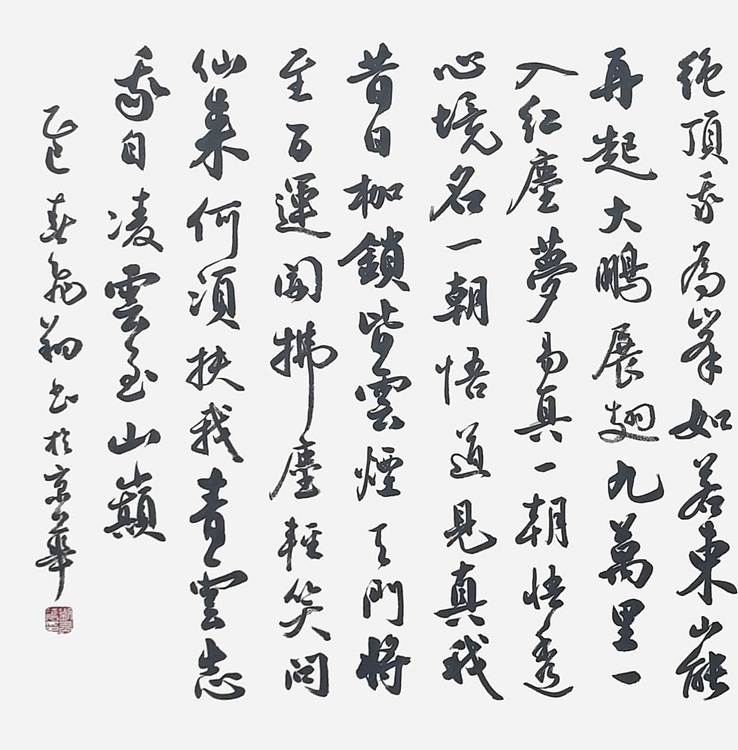 絶頂我為峯如若東山能
再起大鵬展翅九萬里一
入紅塵夢易真一朝悟透
心境名一朝悟道見真我
昔日枷鎖皆雲煙天門將
至百運開拂塵輕笑問
仙來何須扶我青雲志
我自凌雲至山巔
乙巳春飛翔书於京華